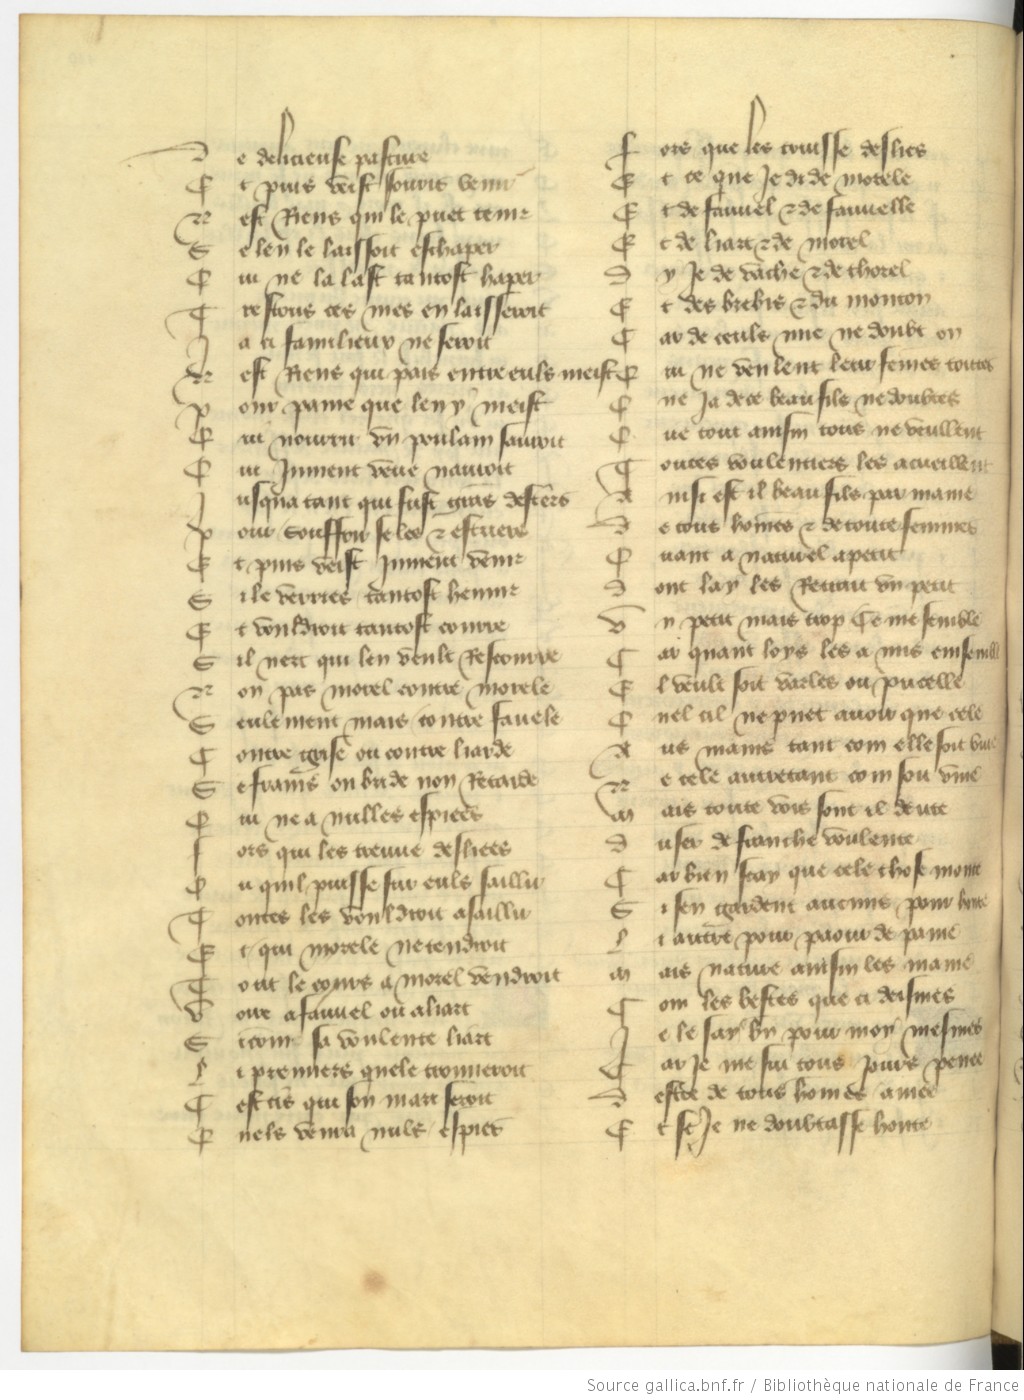 D e delicieuse pasture
E t puis veist souris venir
N est Riens qui le puet tenir
S e len le laissoit eschaper
Q ui ne la last tantost haper
T restous ces mes en laisseroit
J a si familleux ne seroit
N est Riens qui pais entre euls meist
P our paine que len y meist
Q ui nourrir vn poulain sauroit
Q ui Jument veue nauroit
J usqua tant qui fust grans destres
P our souffrir seles & estriers
E t puis veist Jument venir
S i le verries tantost henir
E t vouldroit tantost courre
S il nert qui len veult Rescourre
N on pas morel contre morele
S eulement mais contre fauele
C ontre grise ou contre liarde
S e frains ou bride non Retarde
Q ui ne a nulles espiees
F ors qui les treuue desliees
O u quil puisse sur euls saillir
T outes les vouldroit asaillir
E t qui morele ne tendroit
T out le cours a morel vendroit
V oire a fauuel ou a liart
S icom sa voulente liart
L i premiers quele trouueroit
C est cis qui son mari seroit
Q nels venra nuls espies
F ors que les truisse deslies
E t ce que Je di de morele
E t de fauuel & de fauuelle
E t de liart & de morel
D y Je de vache & de thorel
E t des brebis & du mouton
C ar de ceuls mie ne doubt on
Q ui ne veulent leur femes toutes
Q ne Ja de ce beau fils ne doubtes
Q ue tout ainsin tous ne veullent
T outes voulentiers les acueillent
A insi est il beau fils par mame
D e tous hommes & de toute femmes
Q uant a naturel apetit
D ont lay les Retrait vn petit
V n petit mais trop Ce me semble
C ar quant loys les a mis ensemble
E l veult soit varles ou pucelle
Q nel cil ne puet auoir que cele
A us mains tant com elle soit viue
N e cele autretant com son viue
M ais toute vois sont il tente
D user de franche voulente
C ar bien scay que cele chose monte
S i sen gardent aucuns pour honte
L i autre pour paour de paine
M ais nature ainsin les maine
C om les bestes que ci deismes
J e le say by pour moy mesmes
C ar Je me sui tous Jours penee
D estre de tous homes amee
E t se Je ne doubtasse honte
Source gallica.bnf.fr / Bibliothèque nationale de France